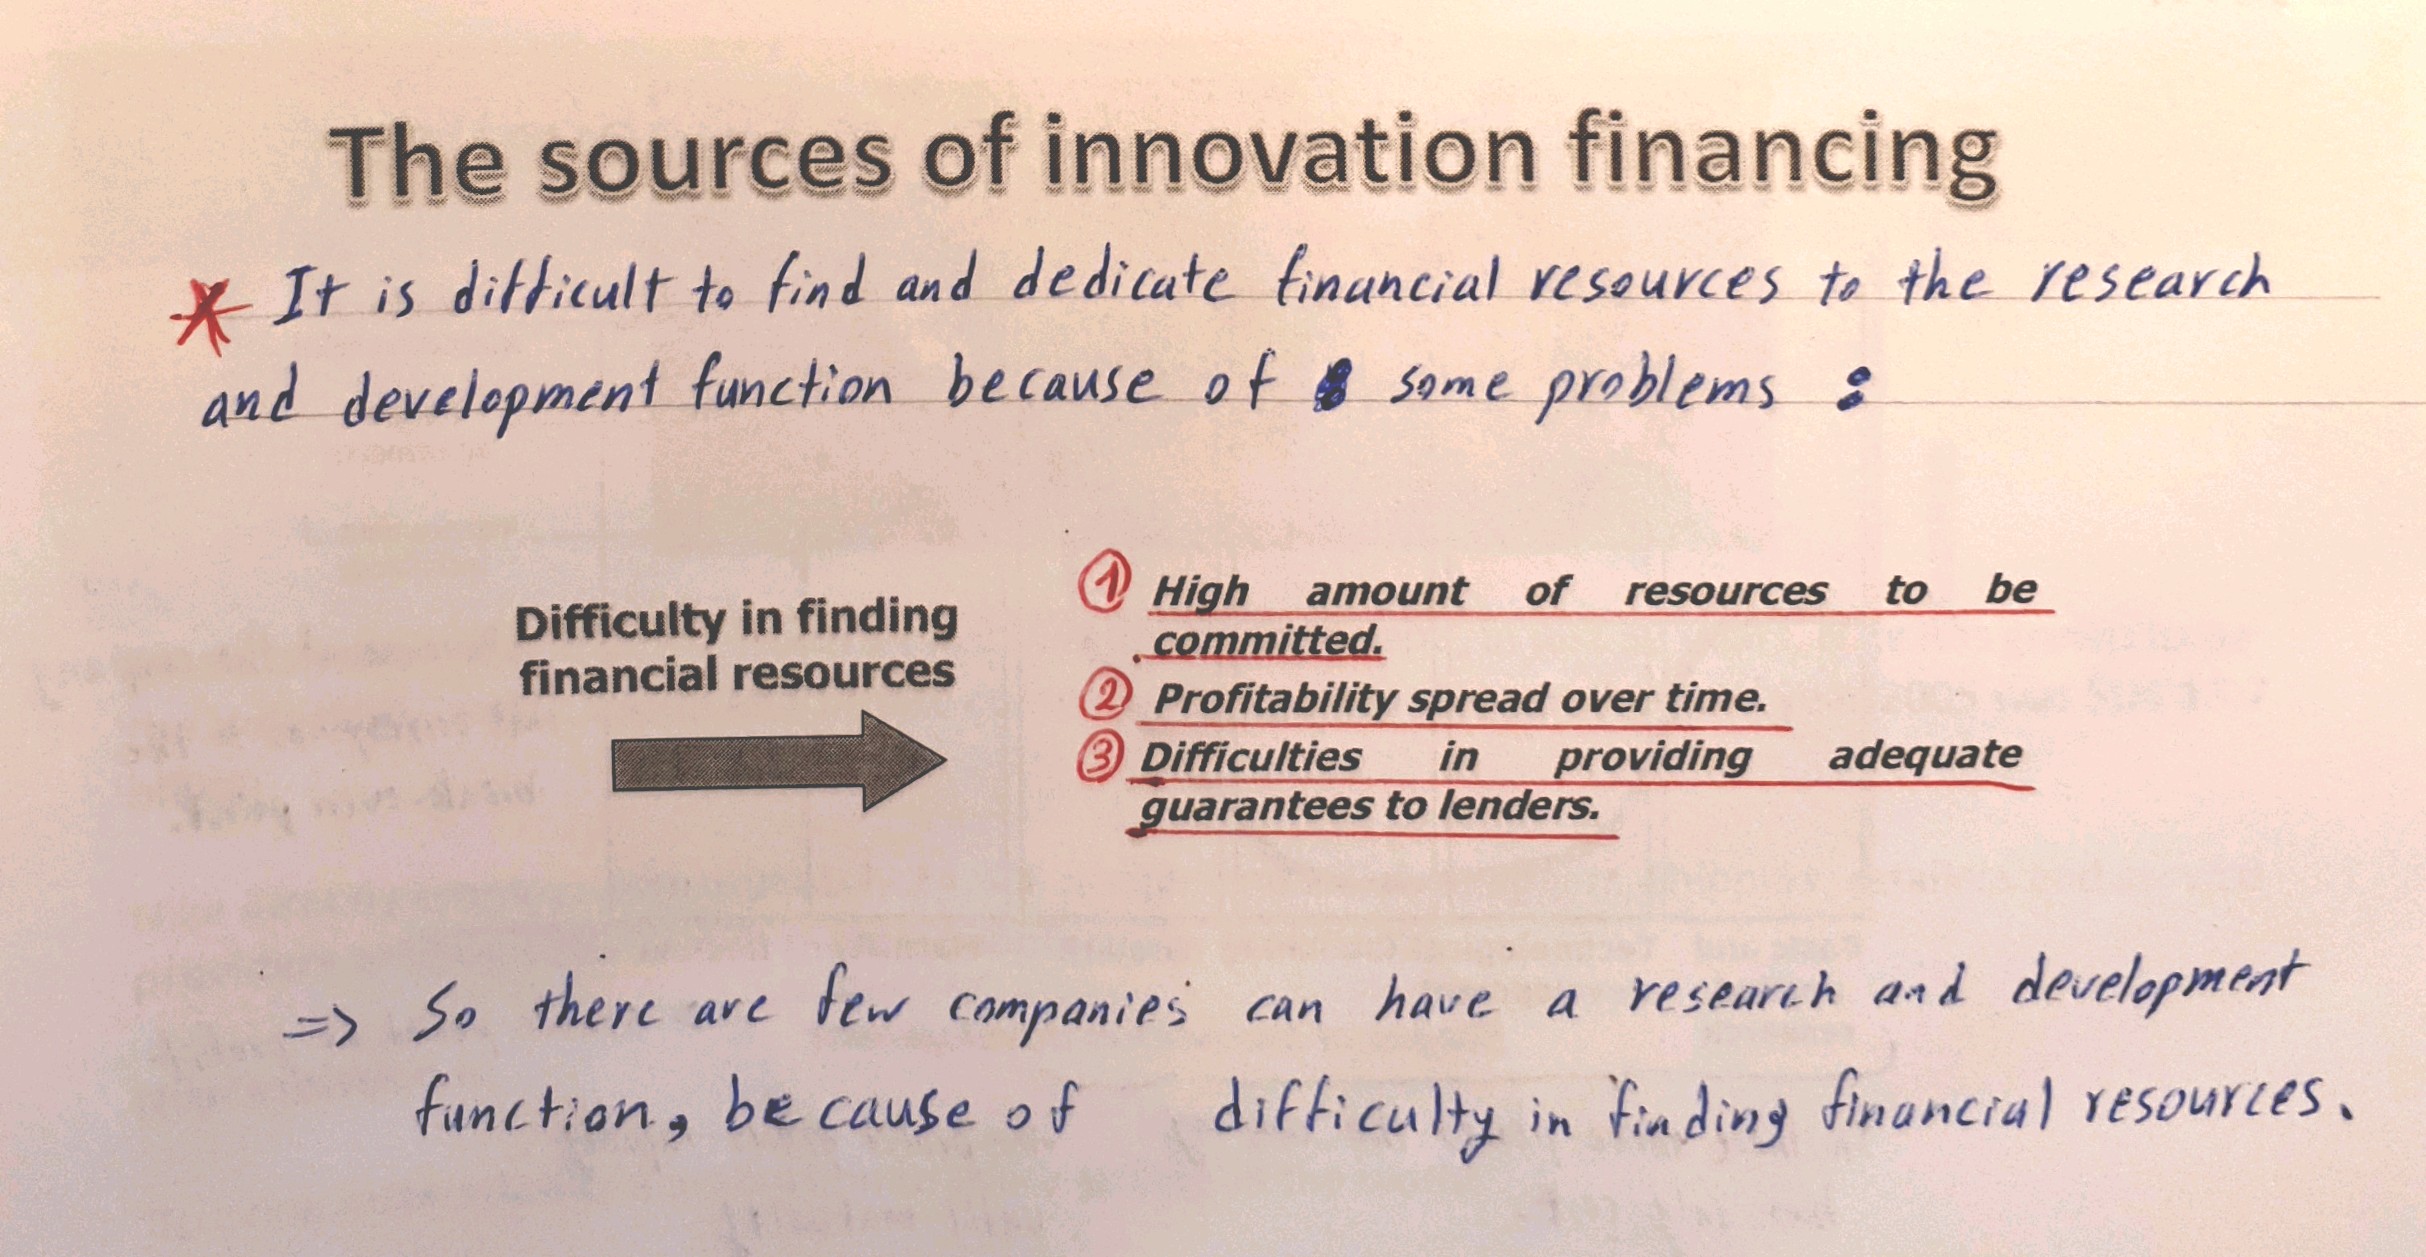 The sources of innovation financing
* It is difficult to find and dedicate financial resources to the research
and development function because of some problems :
Difficulty in finding
financial resources
① High amount of resources to be
committed.
② Profitability spread over time.
③ Difficulties in providing adequate
guarantees to lenders.
=> So there are few companies can have a research and development
function, because of difficulty in finding financial resources.